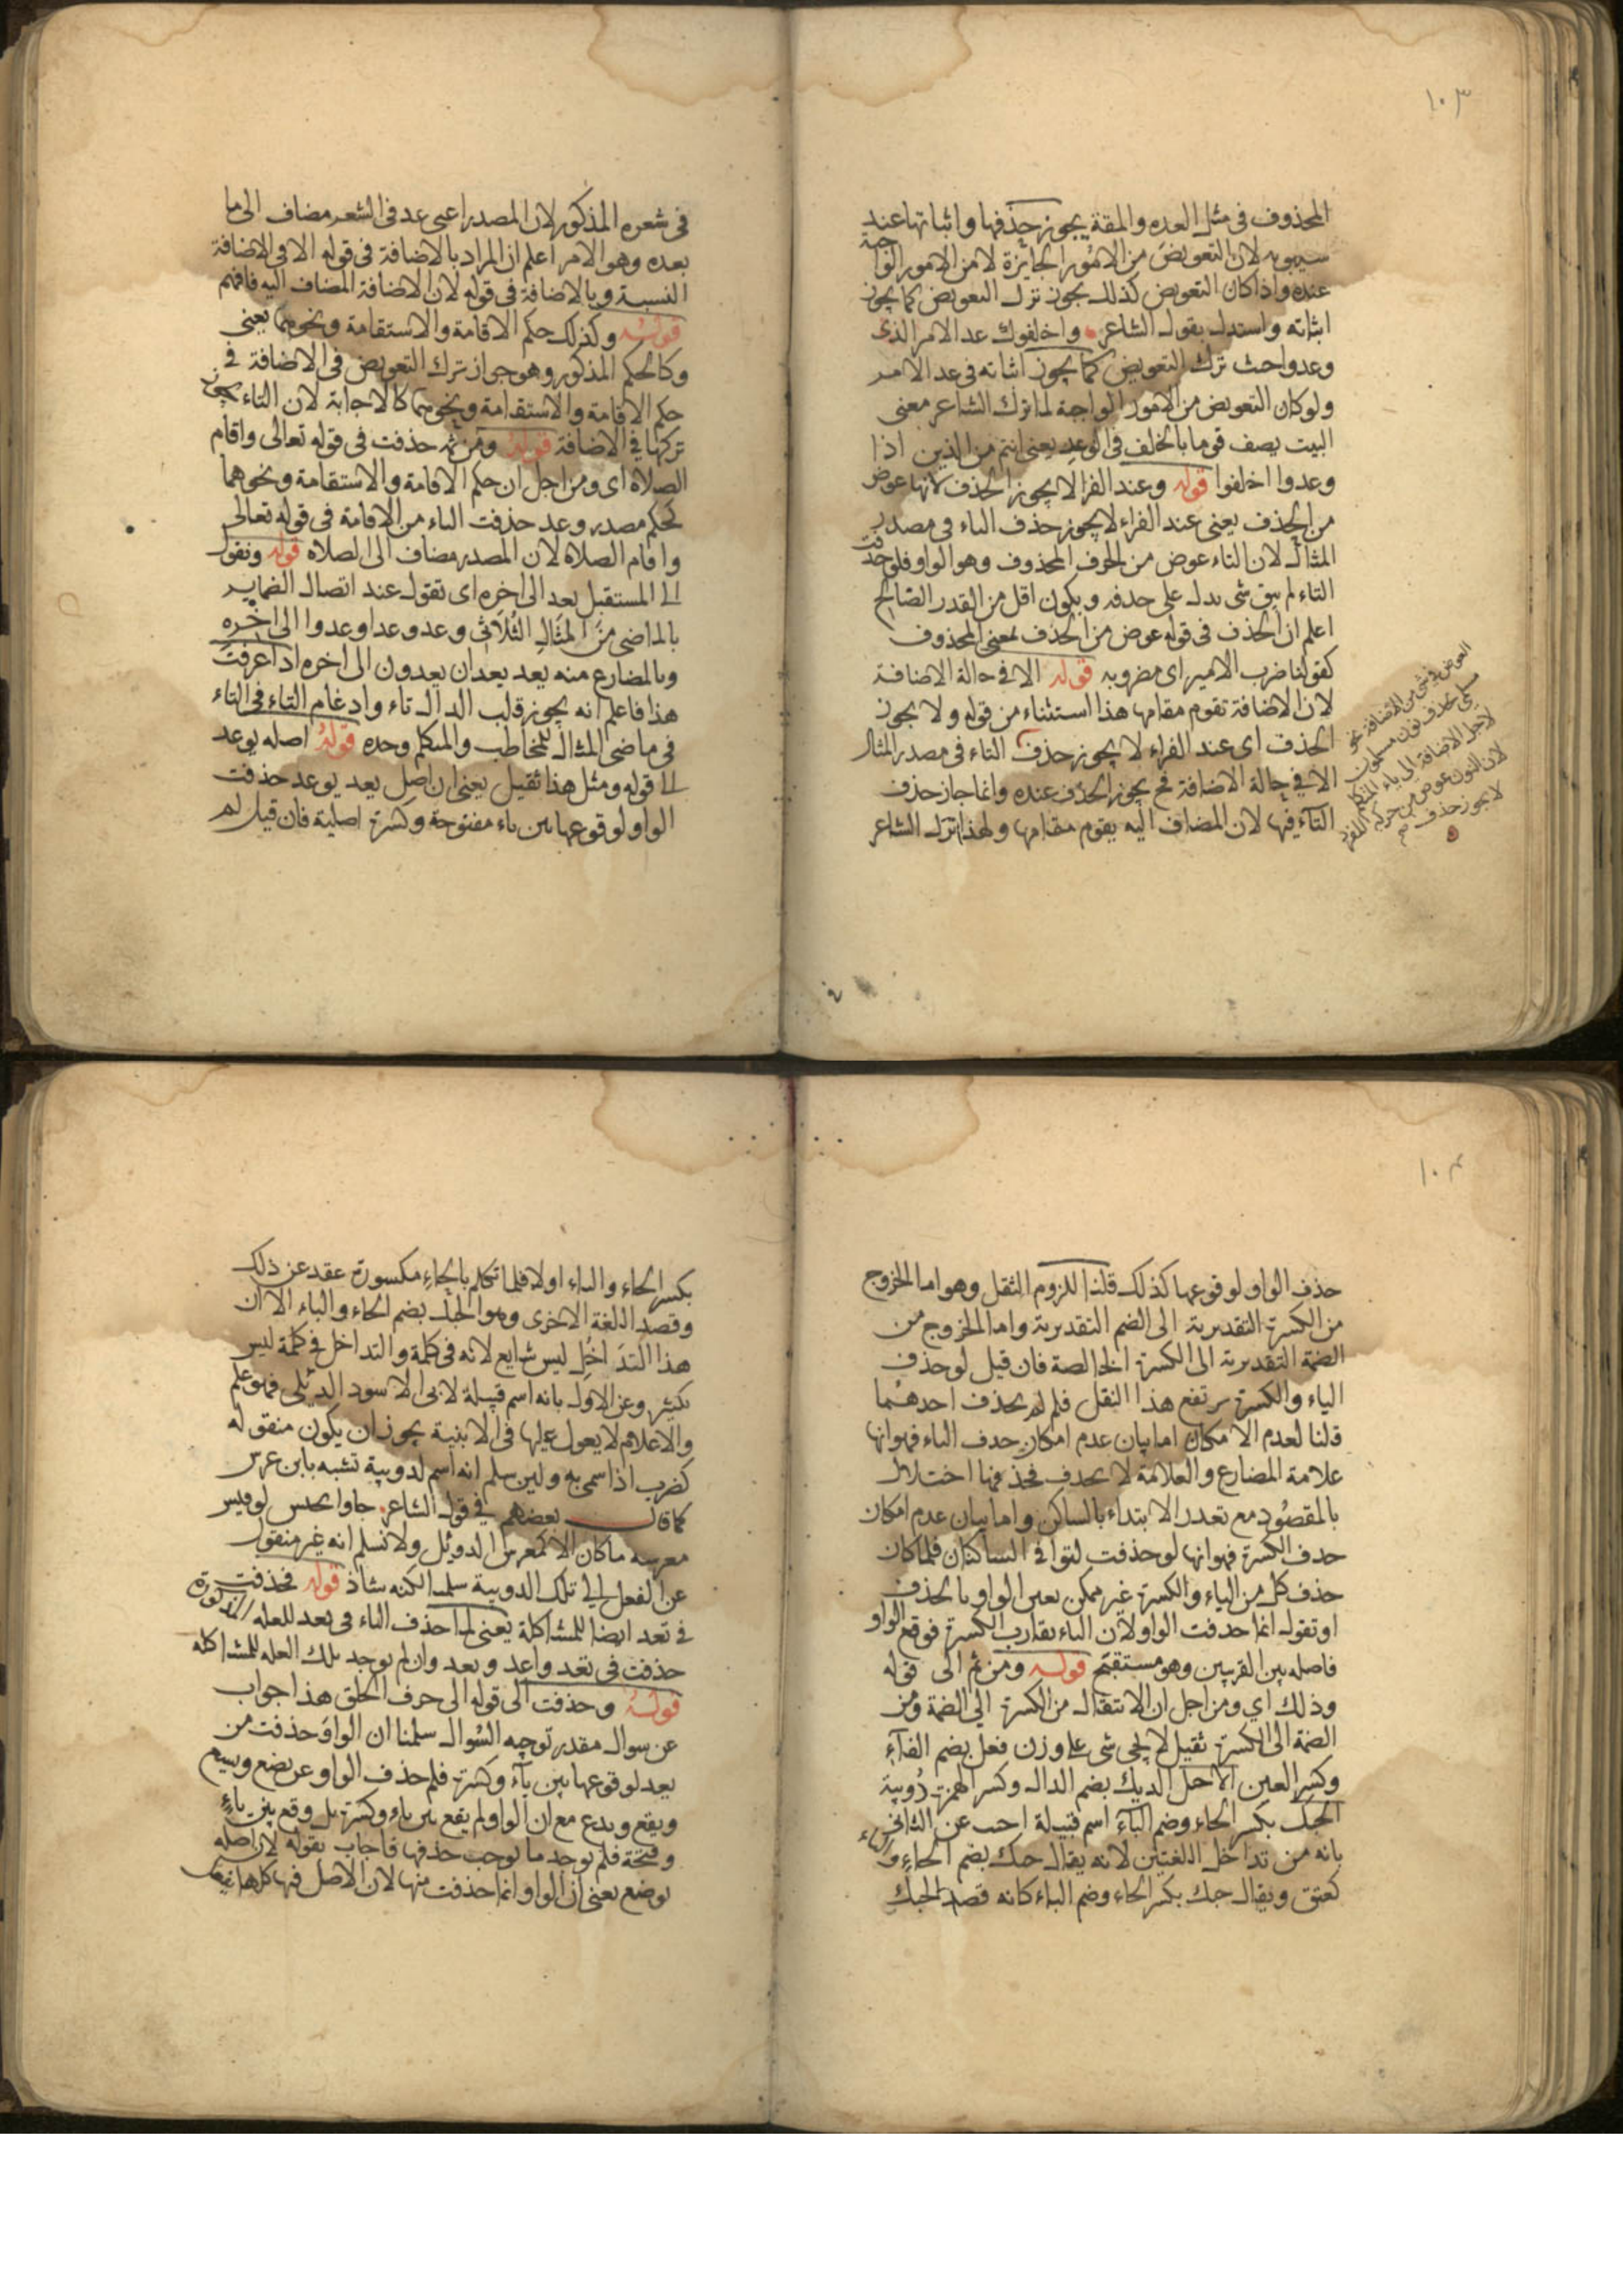 ١٠٣
المحذوف فى مثل العده والمقة يجوز حذفها واثباتها عند
سيبويه لان التعويض من الامور الجايزة لا من الامور الواجبة
عنده واذا كان التعويض كذلك يجوز ترك التعويض كما يجوز
اثباته واستدل بقول الشاعر واخلفوك عد الامر الذى
وعدوا حيث ترك التعويض كما يجوز اثباته فى عد الامر
ولو كان التعويض من الامور الواجبة لما ترك الشاعر معنى
البيت يصف قوما بالخلف فى الوعد يعنى انتم من الذين اذا
وعدوا اخلفوا قوله وعند الفرا لا يجوز الحذف لانها عوض
من الحذف يعنى عند الفراء لا يجوز حذف التاء فى مصدر
المثال لان التاء عوض من الحرف المحذوف وهو الواو فلو حذفت
التاء لم يبق شى يدل على حذفه ويكون اقل من القدر الصالح
اعلم ان الحذف فى قوله عوض من الحذف بمعنى المحذوف
كقولنا ضرب الامير اى مضروبه قوله الا فى حالة الاضافة
لان الاضافة تقوم مقامها هذا استثناء من قوله ولا يجوز
الحذف اى عند الفراء لا يجوز حذف التاء فى مصدر المثال
الا فى حالة الاضافة فح يجوز الحذف عنده وانما جاز حذف
التاء فيها لان المضاف اليه يقوم مقامها ولهذا ترك الشاعر
لاجل الاضافة الى ياء المتكلم
لان النون عوض من حركة المفرد
لا يجوز حذف
فى شعره المذكور لان المصدر اعنى عد فى الشعر مضاف الى ما
بعده وهو الامر اعلم ان المراد بالاضافة فى قوله الا فى الاضافة
النسبة وبالاضافة فى قوله لان الاضافة المضاف اليه فافهم
قوله وكذلك حكم الاقامة والاستقامة ونحوهما يعنى
وكالحكم المذكور وهو جواز ترك التعويض فى الاضافة فى
حكم الاقامة والاستقامة ونحوهما كالاجابة لان التاء يجوز
تركها فى الاضافة قوله ومن ثم حذفت فى قوله تعالى واقام
الصلاة اى ومن اجل ان حكم الاقامة والاستقامة ونحوهما
كحكم مصدر وعد حذفت التاء من الاقامة فى قوله تعالى
واقام الصلاة لان المصدر مضاف الى الصلاه قوله وتقول
الى المستقبل يعد الى اخره اى تقول عند اتصال الضماير
بالماضى من المثال الثلاثى وعد وعدا وعدوا الى اخره
وبالمضارع منه يعد يعدان يعدون الى اخره اذا عرفت
هذا فاعلم انه يجوز قلب الدال تاء وادغام التاء فى التاء
فى ماضى المثال للمخاطب والمتكلم وحده قوله اصله يوعد
الى قوله ومثل هذا ثقيل يعنى ان اصل يعد يوعد حذفت
الواو لوقوعها بين ياء مفتوحة وكسرة اصلية فان قيل لم
١٠٤
حذف الواو لوقوعها كذلك قلنا للزوم الثقل وهو اما الخروج
من الكسرة التقديرية الى الضم التقديرية واما الخروج من
الضمة التقديرية الى الكسرة الخالصة فان قيل لو حذف
الياء والكسرة يرتفع هذا الثقل فلم لم يحذف احدهما
قلنا لعدم الامكان اما بيان عدم امكان حذف الياء فهو انها
علامة المضارع والعلامة لا تحذف فحذفها اختلال
بالمقصود مع تعذر الابتداء بالساكن واما بيان عدم امكان
حذف الكسرة فهو انها لو حذفت لتوا فى الساكنان فلما كان
حذف كل من الياء والكسرة غير ممكن تعين الواو بالحذف
او تقول انما حذفت الواو لان الياء تقارب الكسرة فوقع الواو
فاصله بين القريبين وهو مستقبح قوله ومن ثم الى قوله
وذلك اي ومن اجل ان الانتقال من الكسرة الي الضمة ومن
الضمة الى الكسرة ثقيل لم يجى شى على وزن فعل بضم الفاء
وكسر العين الا حبك الديك بضم الدال وكسر الهمزة دويبة
الحبك بكسر الحاء وضم الباء اسم قبيلة اجيب عن الثانى
بانه من تداخل اللغتين لانه يقال حبك بضم الحاء والباء
كعنق ويقال حبك بكسر الحاء وضم الباء كانه قصد الحبك
بكسر الحاء والباء اولا فلما تكلم بالحاء مكسورة عقد عن ذلك
وقصد اللغة الاخرى وهو الحبك بضم الحاء والباء الا ان
هذا التداخل ليس شايع لانه فى كلمة والتداخل فى كلمة ليس
بكثير وعن الاول بانه اسم قبيلة لابى الاسود الدئلى فهو علم
والاعلام لا يعول عليها فى الابنية يجوز ان يكون منقوله
كضرب اذا سمى به ولين سلم انه اسم لدويبة تشبه بابن عرس
كما قال بعضهم في قول الشاعر جاوا بجيش لو قيس
معرسه ما كان الا كمعرس الدوئل ولا نسلم انه غير منقول
عن الفعل الى تلك الدويبة سلمنا لكنه شاذ قوله فحذفت
فى تعد ايضا للمشاكلة يعنى لما حذف الباء فى يعد للعله المذكورة
حذفت فى تعد واعد ونعد وان لم يوجد تلك العله للمشاكله
قوله وحذفت الى قوله الى حرف الحلق هذا جواب
عن سوال مقدر توجيه السوال سلمنا ان الواو حذفت من
يعد لوقوعها بين ياء وكسرة فلم حذف الواو عن يضع ويسع
ويقع ويدع مع ان الواو لم يقع بين ياء وكسرة بل وقع بين ياء
وفتحة فلم يوجد ما يوجب حذفها فاجاب بقوله لان اصله
يوضع يعنى ان الواو انما حذفت منها لان الاصل فيها كلها